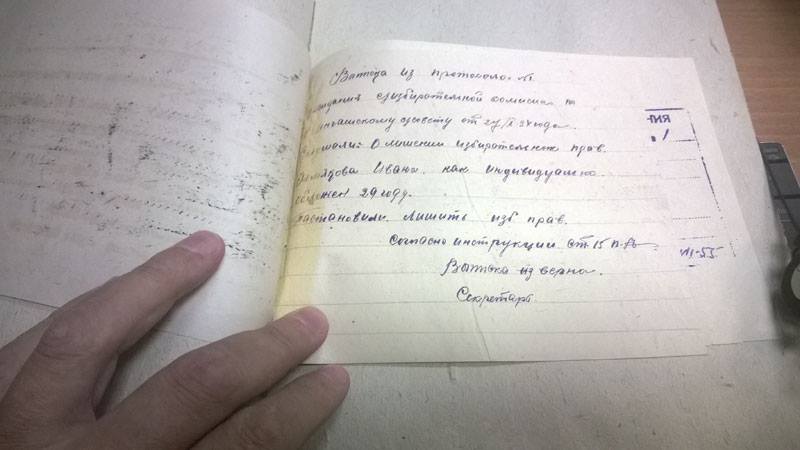 Выписка из протокола №1.
заседания с/избирательной комисии по
с/совету от 27/X 34 года.
Слушали: О лишении избирательных прав.
Ивана как индивидуально
обложен 29 году.
Постановили Лишить изб прав.
Согласно инструкции ст 15 п.
Выписка верна.
Секретарь